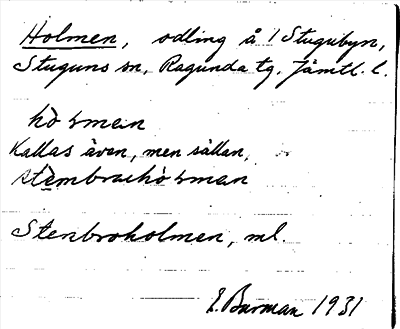 Holmen, odling å 1 Stugubyn,
Stuguns sn, Ragunda tg, Jämtl. l.
Kallas även, men sällan,
Stenbroholmen, ml.
E. Barman 1931